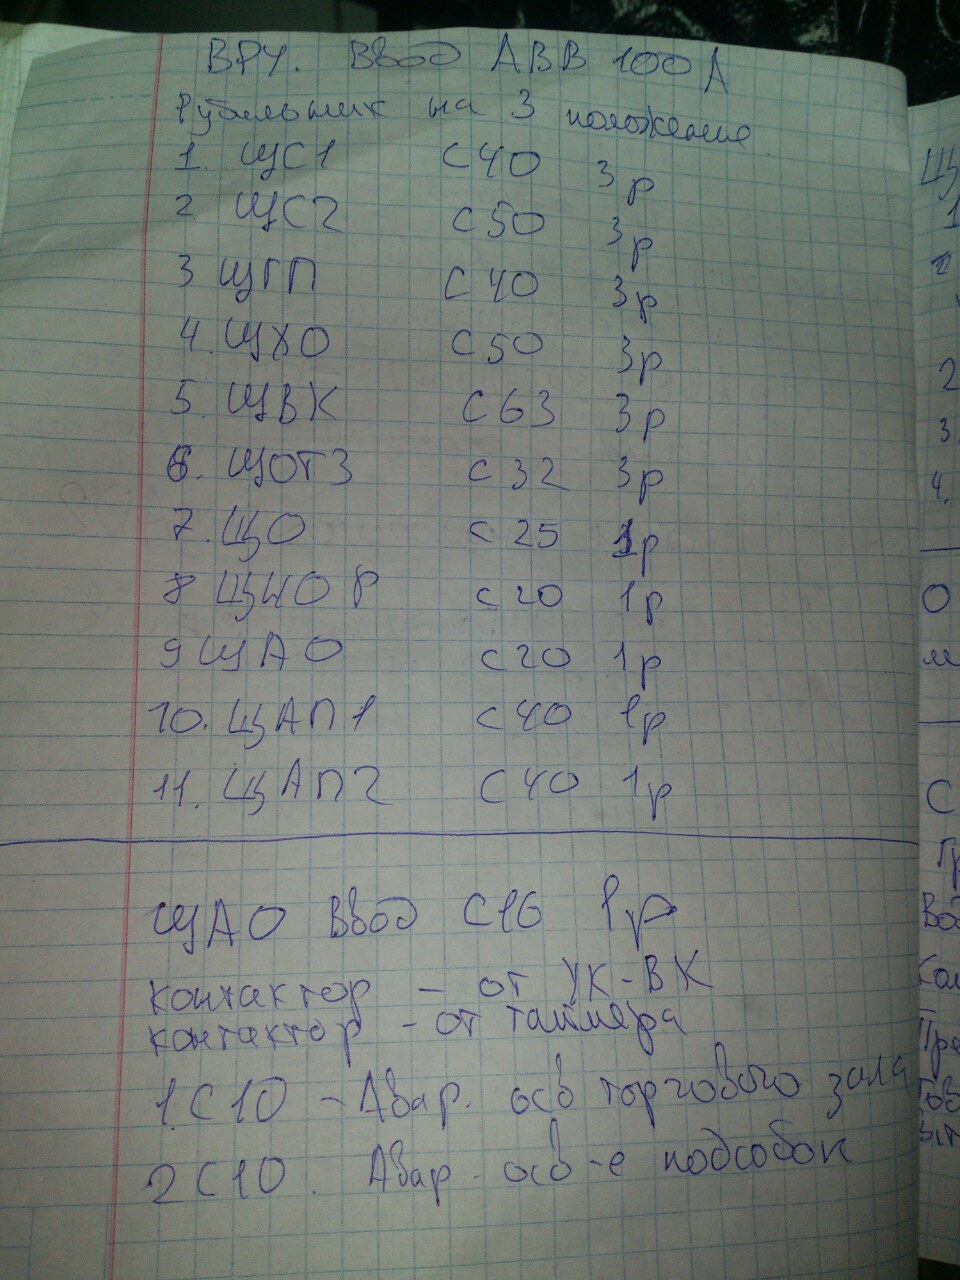 ВРУ. Ввод АВВ 100А
Рубильник на 3 положение
1. ЩС1 С40 3р
2 ЩС2 С50 3р
3 ЩГП С40 3р
4. ЩХО С50 3р
5. ЩВК С63 3р
6. ЩОТЗ С32 3р
7. ЩО С25 1р
8 ЩНОР С20 1р
9 ЩАО С20 1р
10. ЩАП1 С40 1р
11. ЩАП2 С40 1р
ЩАО Ввод С16 1р
контактор - от УК-ВК
контактор - от таймера
1. С10 - Авар. осв торгового зала
2 С10. Авар. осв-е подсобок
Щ
1
2
2
3.
4.
О
м
С